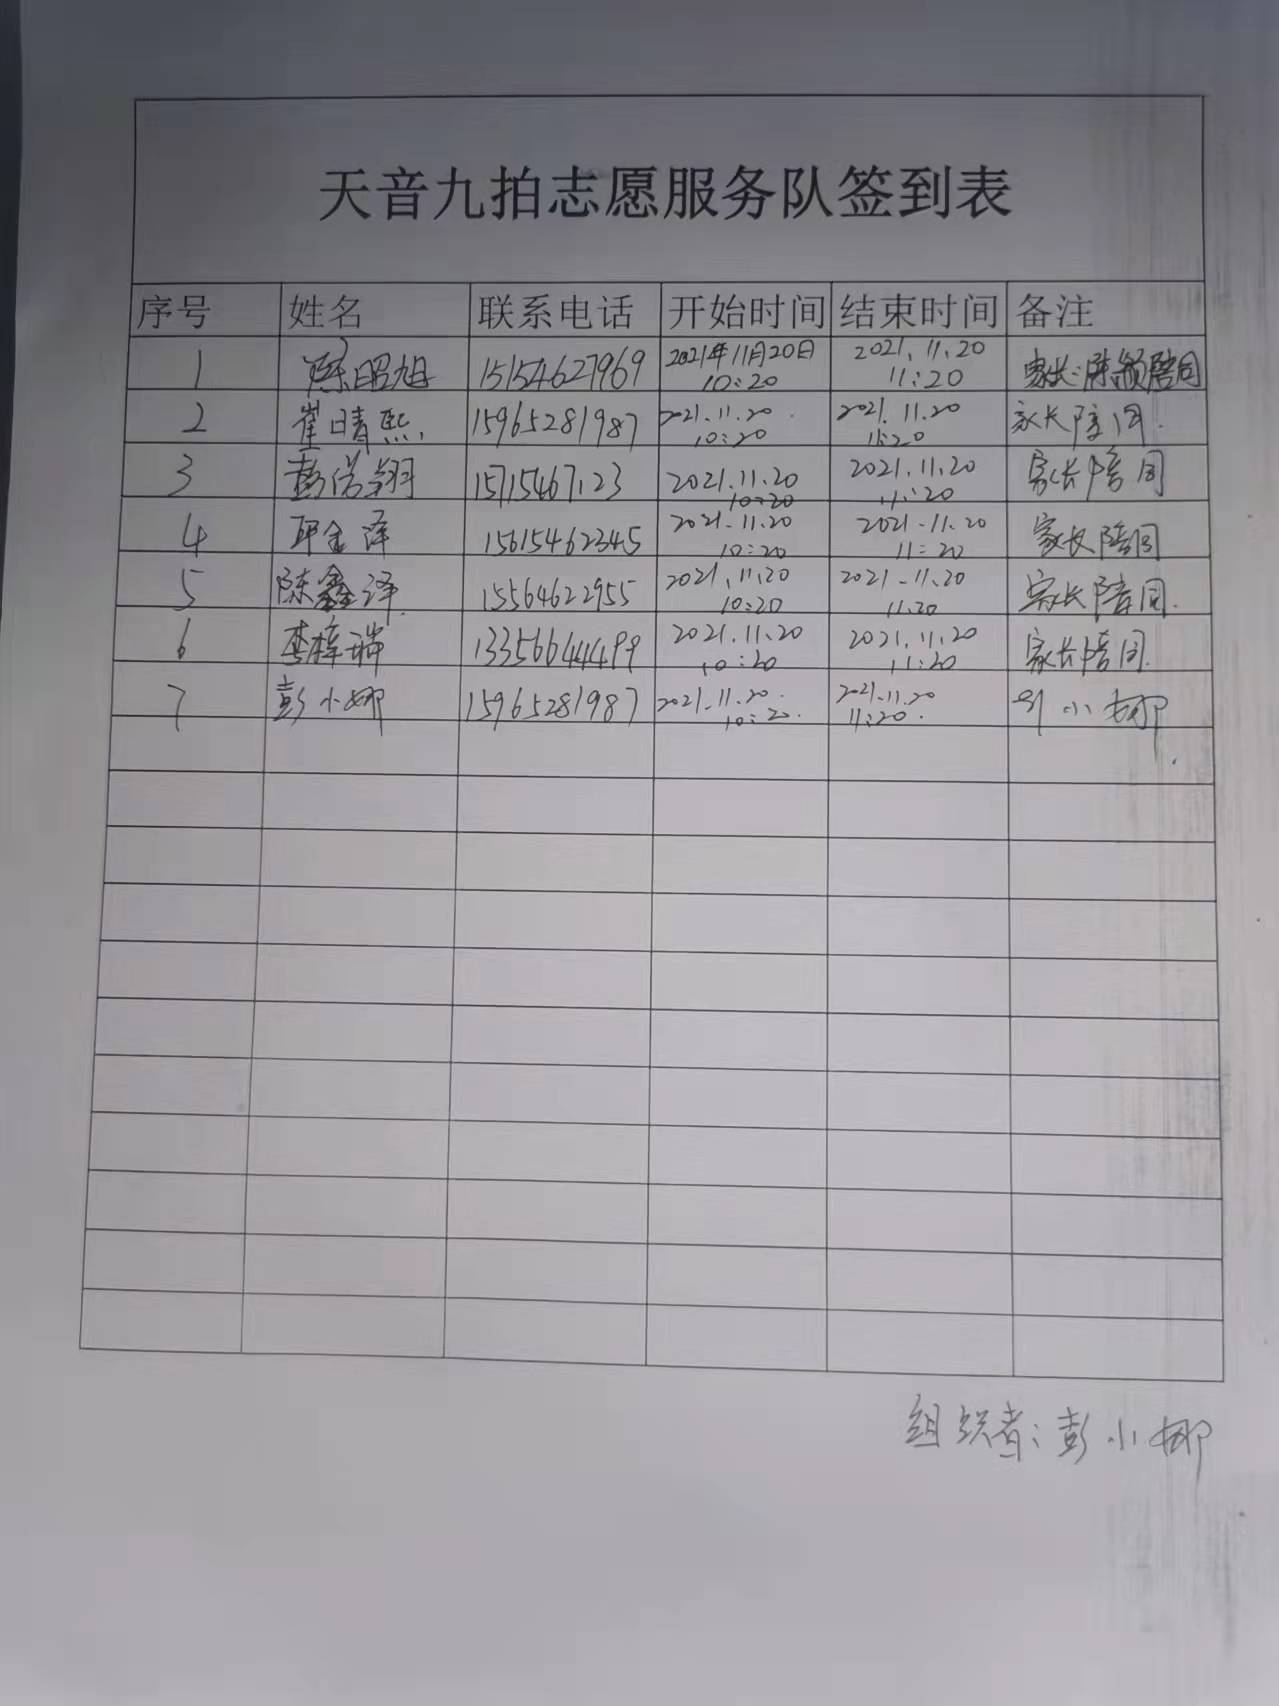 天音九拍志愿服务队签到表
序号 姓名 联系电话 开始时间 结束时间 备注
1 陈昭旭 15154627969 2021年11月20日 10:20 2021.11.20 11:20 家长:陈颖陪同
2 崔晴熙 15965281987 2021.11.20 10:20 2021.11.20 11:20 家长陪同
3 彭偌翔 15715467123 2021.11.20 10:20 2021.11.20 11:20 家长陪同
4 金泽 15615462345 2021.11.20 10:20 2021.11.20 11:20 家长陪同
5 陈鑫泽 15564622955 2021.11.20 10:20 2021.11.20 11.20 家长陪同
6 李梓瑞 13356644499 2021.11.20 10:20 2021.11.20 11:20 家长陪同
7 彭小娜 15965281987 2021.11.20 10:20 2021.11.20 11:20 小娜
组织者:彭小娜